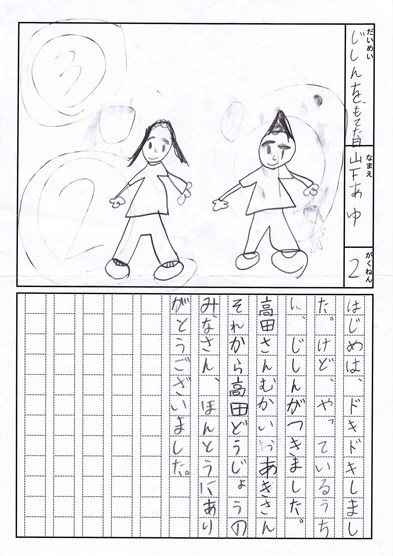 だいめい
じしんをもてた日
なまえ
山下あゆ
がくねん
2
③
②
はじめは、ドキドキしまし
た。けど、やっているうち
に、じしんがつきました。
高田さんむかい あきさん
それから高田どうじょうの
みなさん、ほんとうにあり
がとうございました。